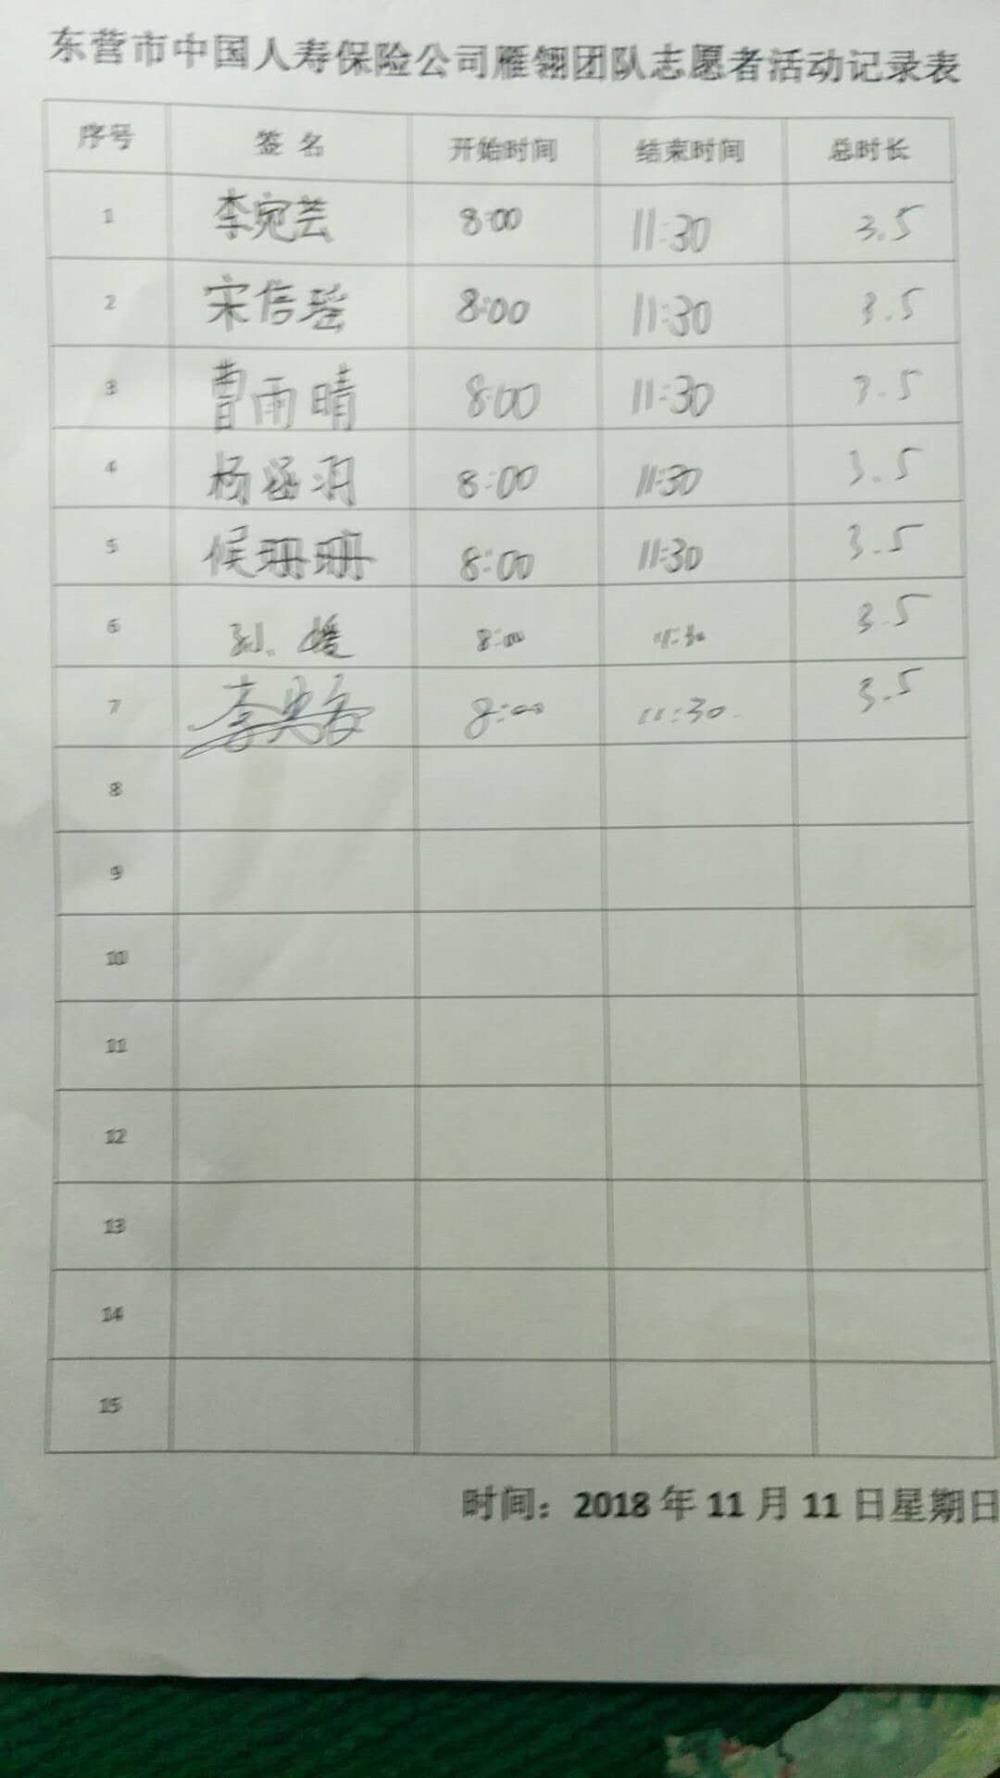 东营市中国人寿保险公司雁翎团队志愿者活动记录表
序号 签 名 开始时间 结束时间 总时长
1 李宛芸 8:00 11:30 3.5
2 宋信瑶 8:00 11:30 3.5
3 曹雨晴 8:00 11:30 3.5
4 杨涵羽 8:00 11:30 3.5
5 候珊珊 8:00 11:30 3.5
6 孙媛 8:00 11:30 3.5
7 李 8:00 11:30 3.5
8
9
10
11
12
13
14
15
时间：2018年11月11日星期日